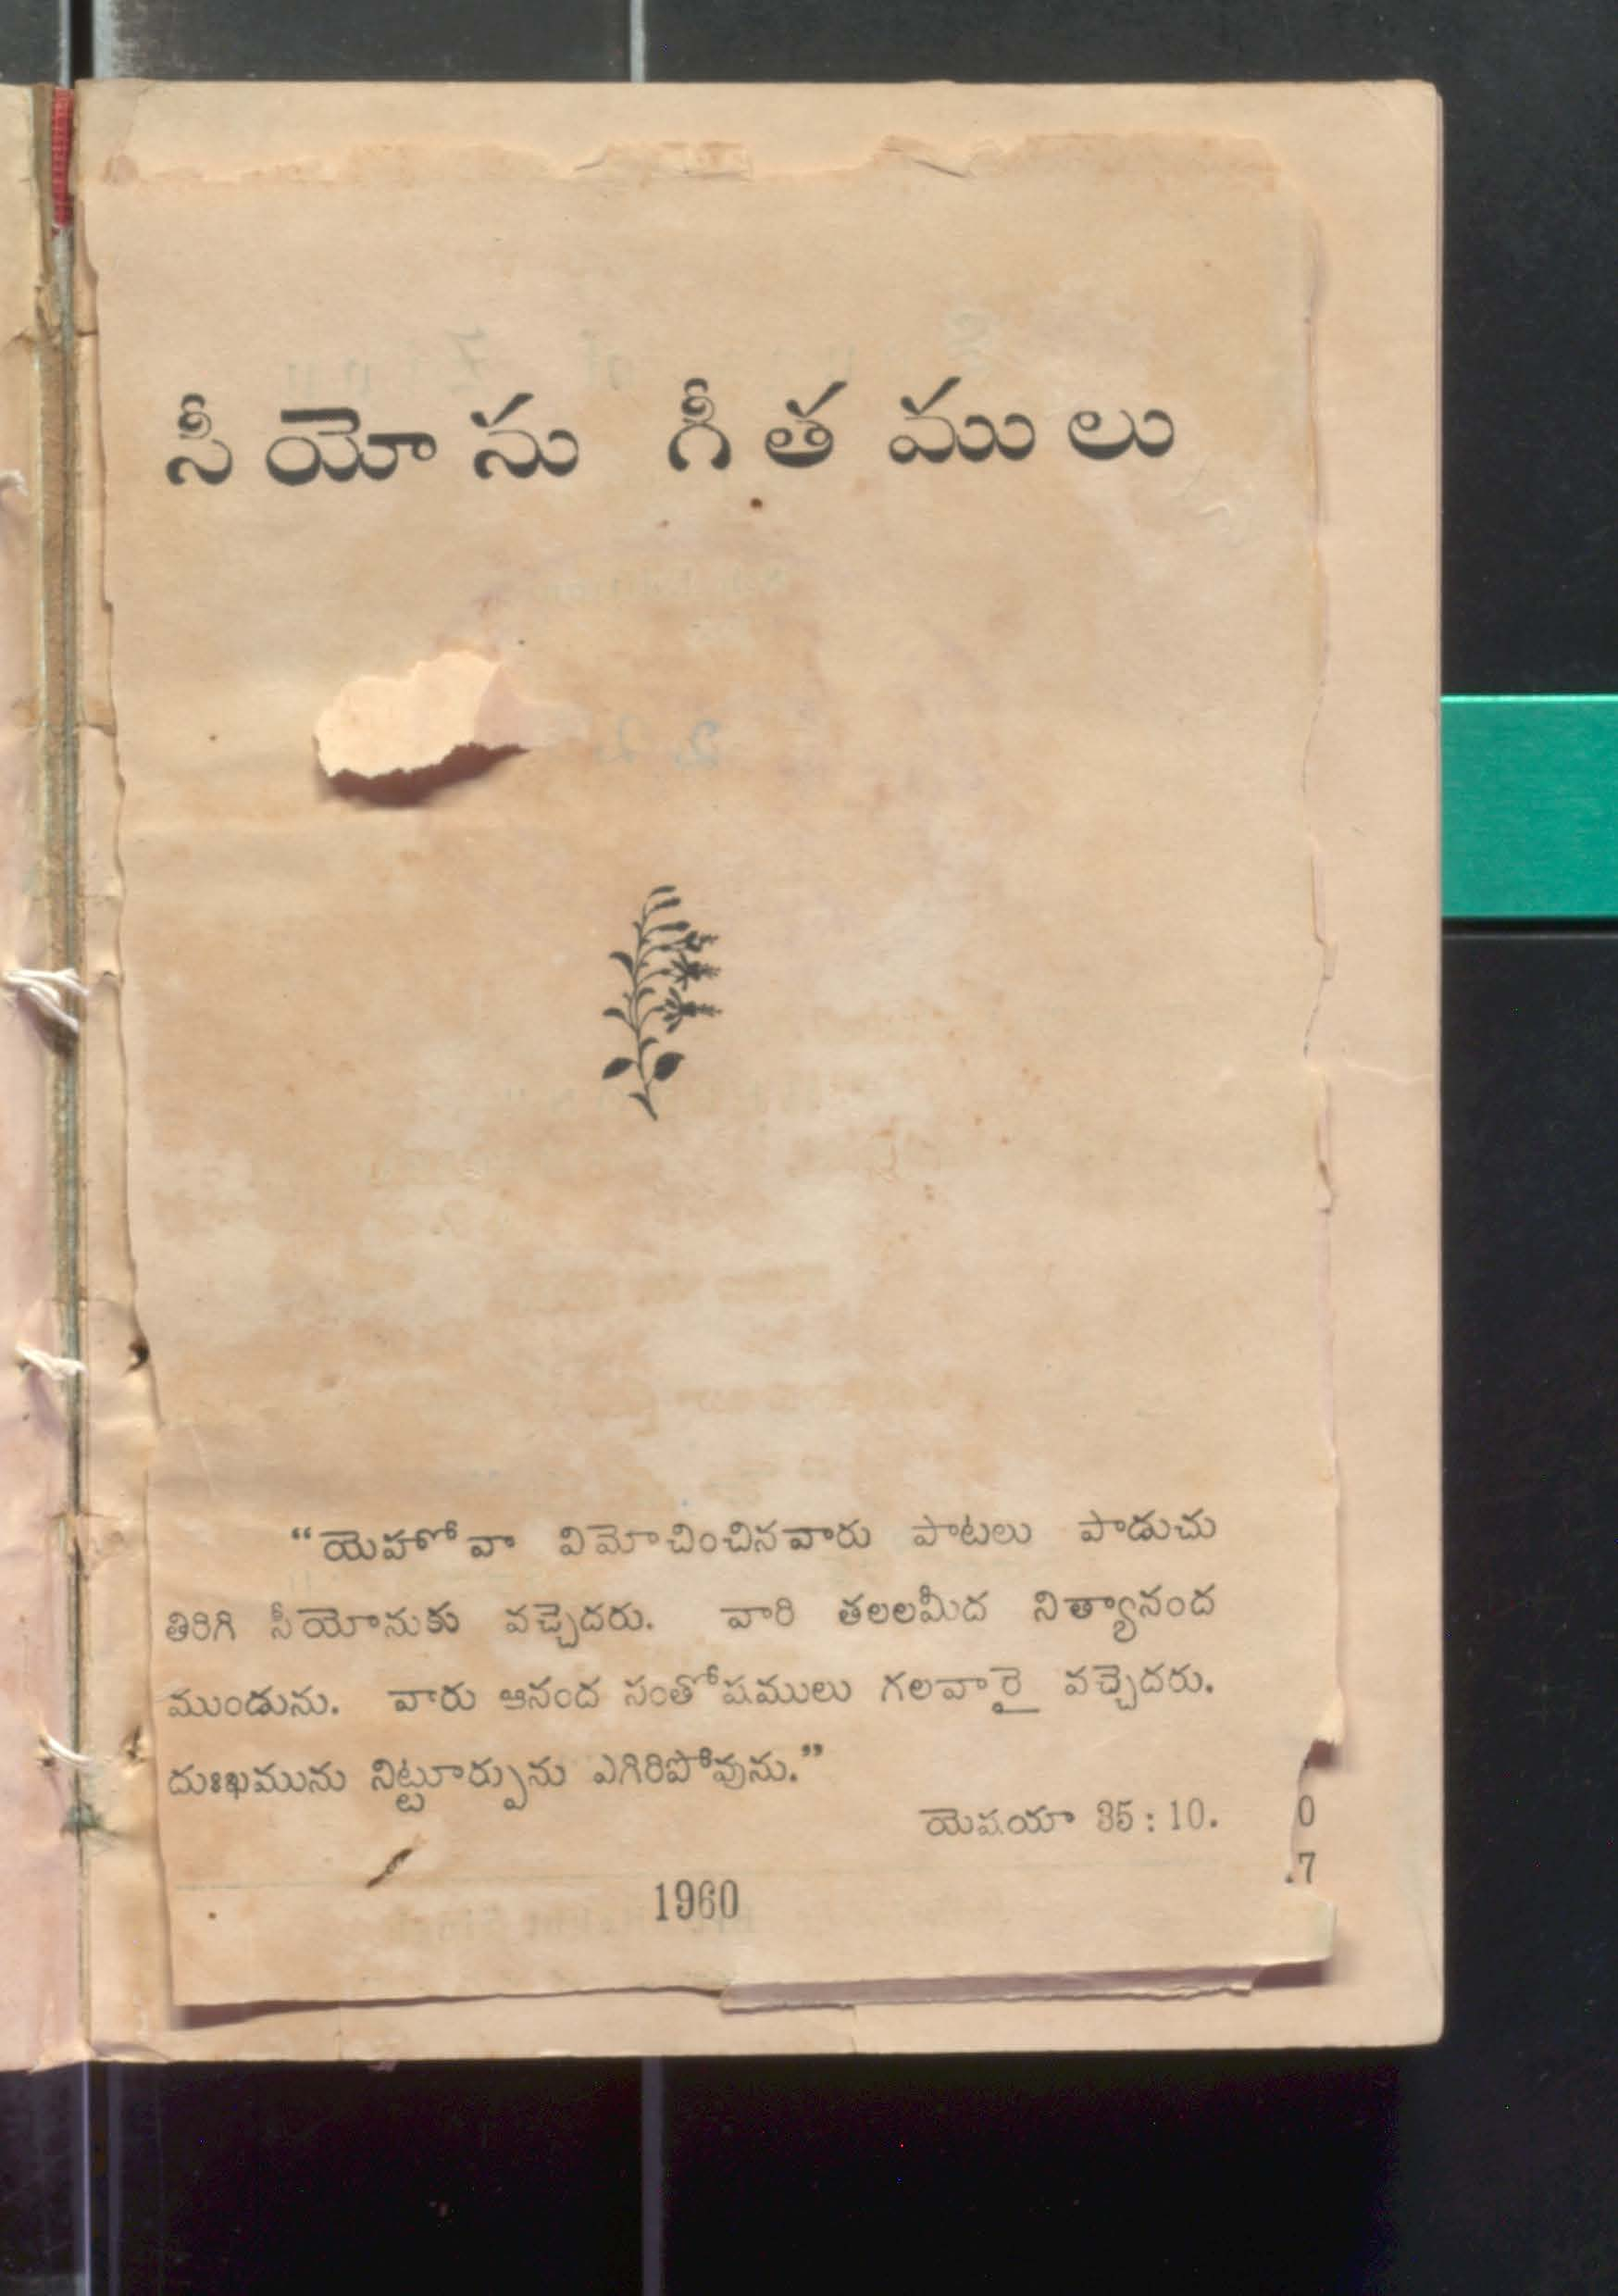 సీయోను గీతములు
“యెహోవా విమోచించినవారు పాటలు పాడుచు
తిరిగి సీయోనుకు వచ్చెదరు. వారి తలలమీద నిత్యానంద
ముండును. వారు ఆనంద సంతోషములు గలవారై వచ్చెదరు.
దుఃఖమును నిట్టూర్పును ఎగిరిపోవును.”
యెషయా 35 : 10.
0
.7
1960